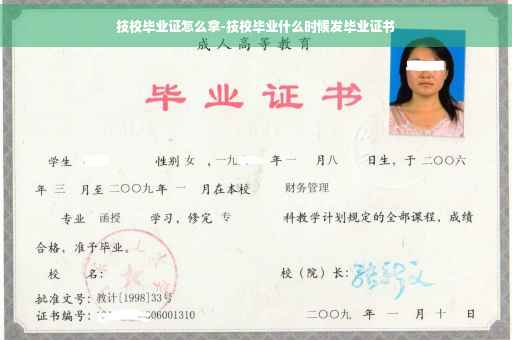 技校毕业证怎么拿-技校毕业什么时候发毕业证书
成人高等教育
毕业证书
学生 性别 女 ，一九 年 一 月 八 日生，于 二〇〇六
年 三 月至 二〇〇九 年 一 月在本校 财务管理
专业 函授 学习，修完 专 科教学计划规定的全部课程，成绩
合格，准予毕业。
校 名： 校（院）长：
批准文号：教计[1998]33号
证书编号： 06001310 二〇〇九 年 一 月 十 日